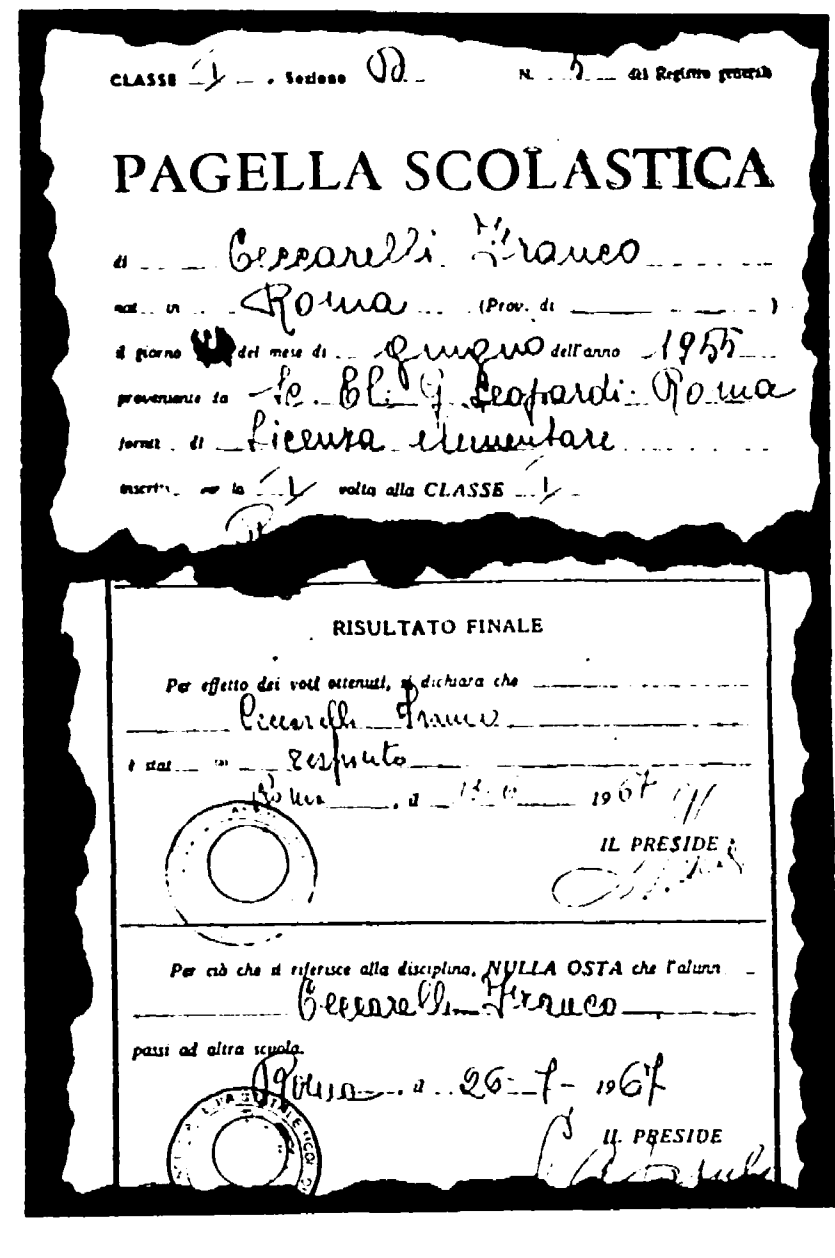 CLASSE I . Sezione D N. 5 del Registro generale
PAGELLA SCOLASTICA
di Ceccarelli Franco
nat in Roma (Prov. di )
il giorno del mese di giugno dell'anno 1955
proveniente da Sc. El. G. Leopardi - Roma
fornit di Licenza elementare
inscritt per la I volta alla CLASSE I
RISULTATO FINALE
Per effetto dei voti ottenuti, si dichiara che
Ceccarelli Franco
è stat respinto
Roma , il 1967
IL PRESIDE
Per ciò che si riferisce alla disciplina, NULLA OSTA che l'alunn
Ceccarelli Franco
passi ad altra scuola.
Roma , il 26-7-1967
IL PRESIDE